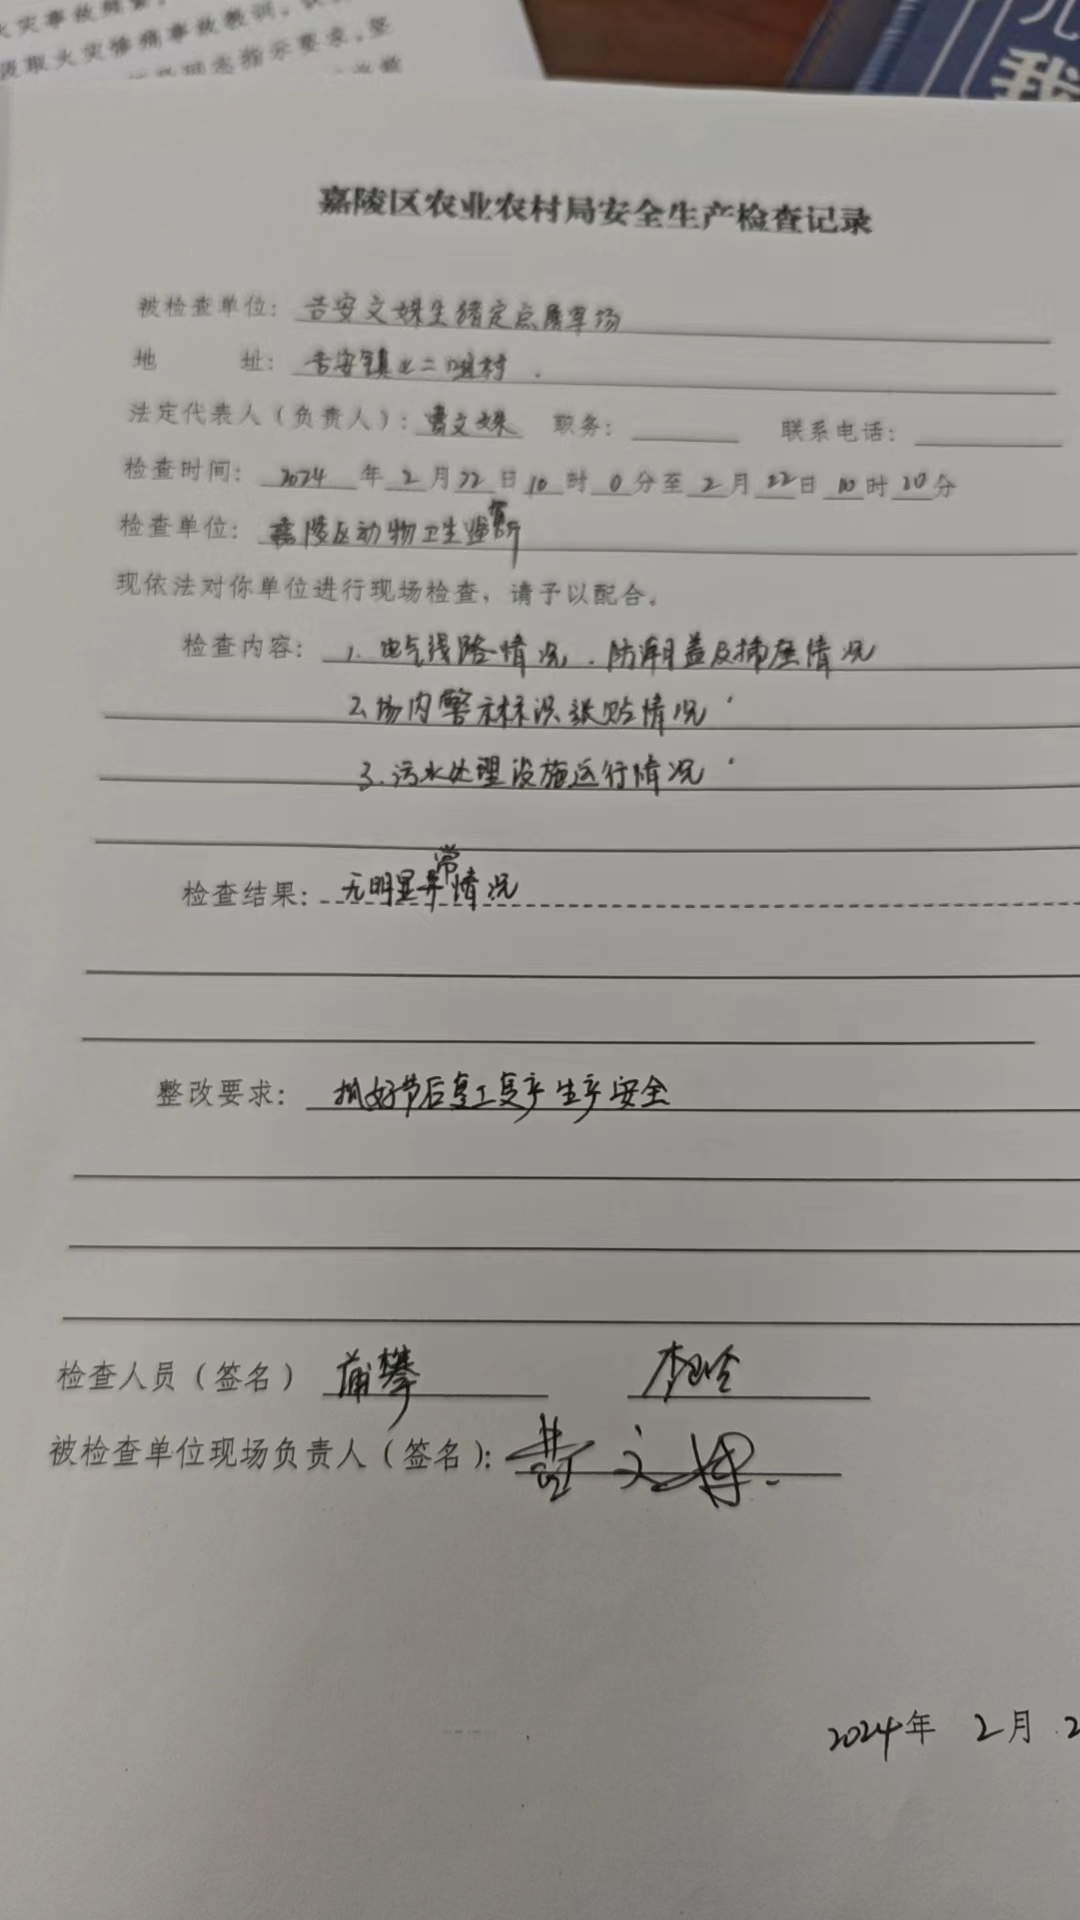 火灾事故
汲取火灾惨痛事故教训，
同志指示要求，坚
我
嘉陵区农业农村局安全生产检查记录
被检查单位：吉安文娣生猪定点屠宰场
地 址：吉安镇 二 村
法定代表人（负责人）： 文 职务： 联系电话：
检查时间：2024年2月22日10时0分至2月22日10时20分
检查单位：嘉陵区动物卫生监督所
现依法对你单位进行现场检查，请予以配合。
检查内容：1.电气线路情况、防潮盖及插座情况
2.场内警示标识张贴情况
3.污水处理设施运行情况
检查结果：无明显异常情况
整改要求：抓好节后复工复产生产安全
检查人员（签名） 蒲攀
被检查单位现场负责人（签名）： 文
2024年 2月 2